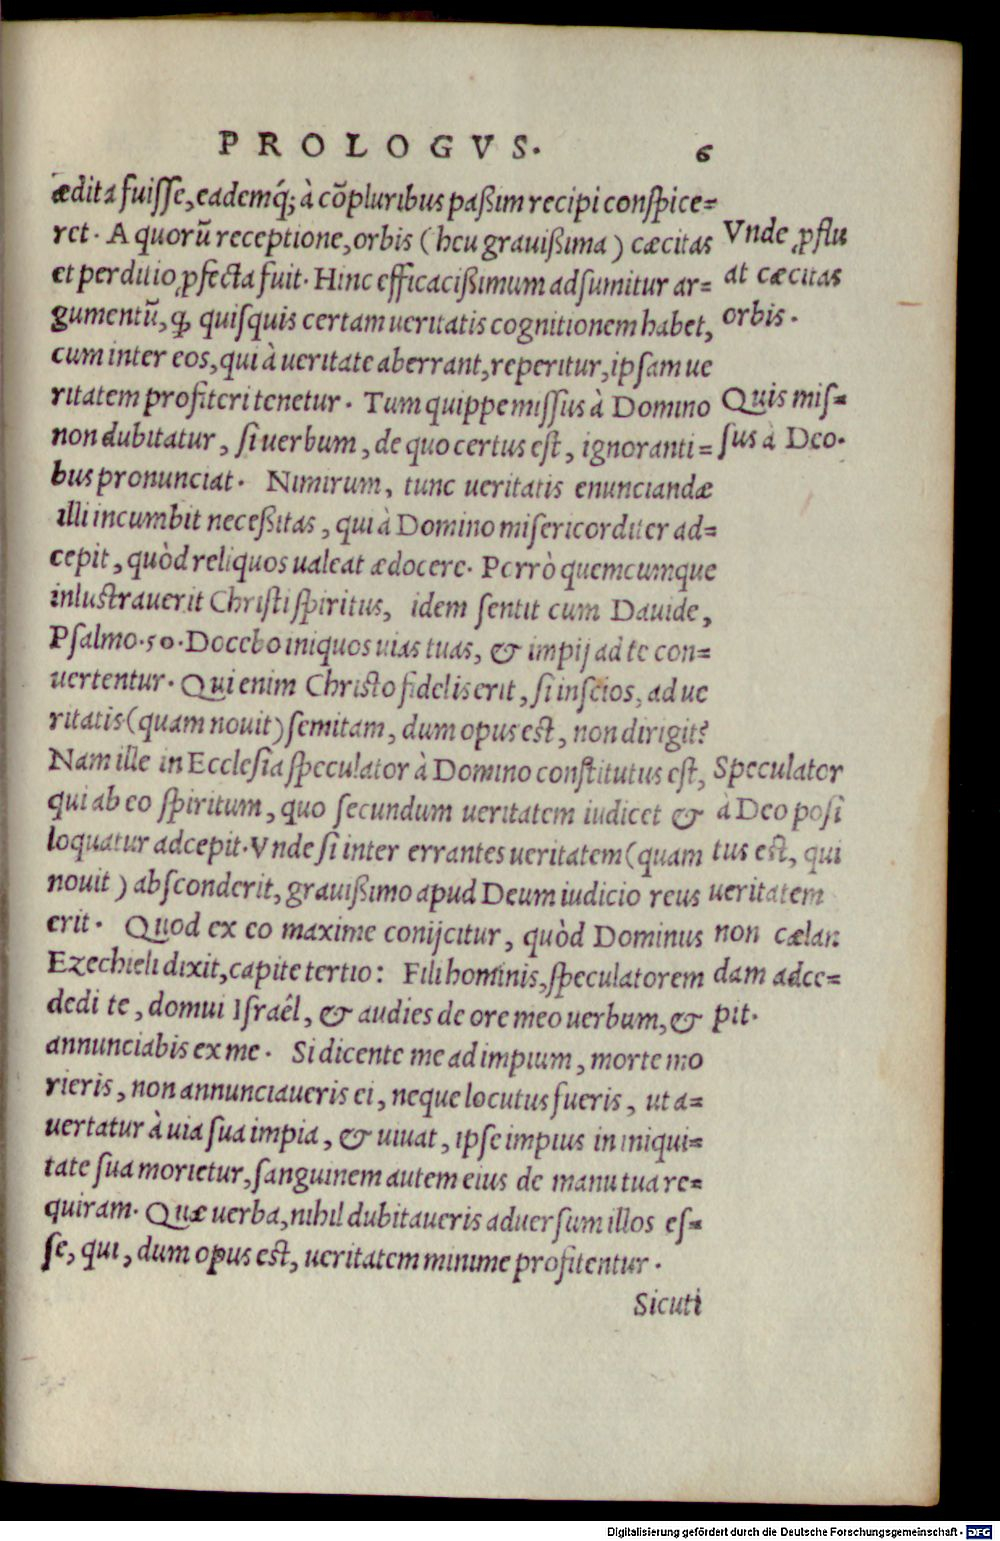 PROLOGVS. 6
ædita fuisse, eademq́; à cõpluribus paßim recipi conspice=
ret. A quorũ receptione, orbis (heu grauißima) cæcitas
et perditio ꝓfecta fuit. Hinc efficacißimum adsumitur ar=
gumentũ, ꝙ quisquis certam ueritatis cognitionem habet,
cum inter eos, qui à ueritate aberrant, reperitur, ipsam ue
ritatem profiteri tenetur. Tum quippe missus à Domino
non dubitatur, si uerbum, de quo certus est, ignoranti=
bus pronunciat. Nimirum, tunc ueritatis enunciandæ
illi incumbit neceßitas, qui à Domino misericorditer ad=
cepit, quòd reliquos ualeat ædocere. Porrò quemcumque
inlustrauerit Christi spiritus, idem sentit cum Dauide,
Psalmo.50. Docebo iniquos uias tuas, & impij ad te con=
uertentur. Qui enim Christo fidelis erit, si inscios, ad ue
ritatis (quam nouit) semitam, dum opus est, non dirigit?
Nam ille in Ecclesia speculator à Domino constitutus est,
qui ab eo spiritum, quo secundum ueritatem iudicet &
loquatur adcepit. Vnde si inter errantes ueritatem (quam
nouit) absconderit, grauißimo apud Deum iudicio reus
erit. Quod ex eo maxime conijcitur, quòd Dominus
Ezechieli dixit, capite tertio: Fili hominis, speculatorem
dedi te, domui Israêl, & audies de ore meo uerbum, &
annunciabis ex me. Si dicente me ad impium, morte mo
rieris, non annunciaueris ei, neque locutus fueris, ut a=
uertatur à uia sua impia, & uiuat, ipse impius in iniqui=
tate sua morietur, sanguinem autem eius de manu tua re=
quiram. Quæ uerba, nihil dubitaueris aduersum illos es=
se, qui, dum opus est, ueritatem minime profitentur.
Sicuti
Vnde ꝓflu
at cæcitas
orbis.
Quis mis=
sus à Deo.
Speculator
à Deo posi
tus est, qui
ueritatem
non cælan
dam adce=
pit.
Digitalisierung gefördert durch die Deutsche Forschungsgemeinschaft - DFG